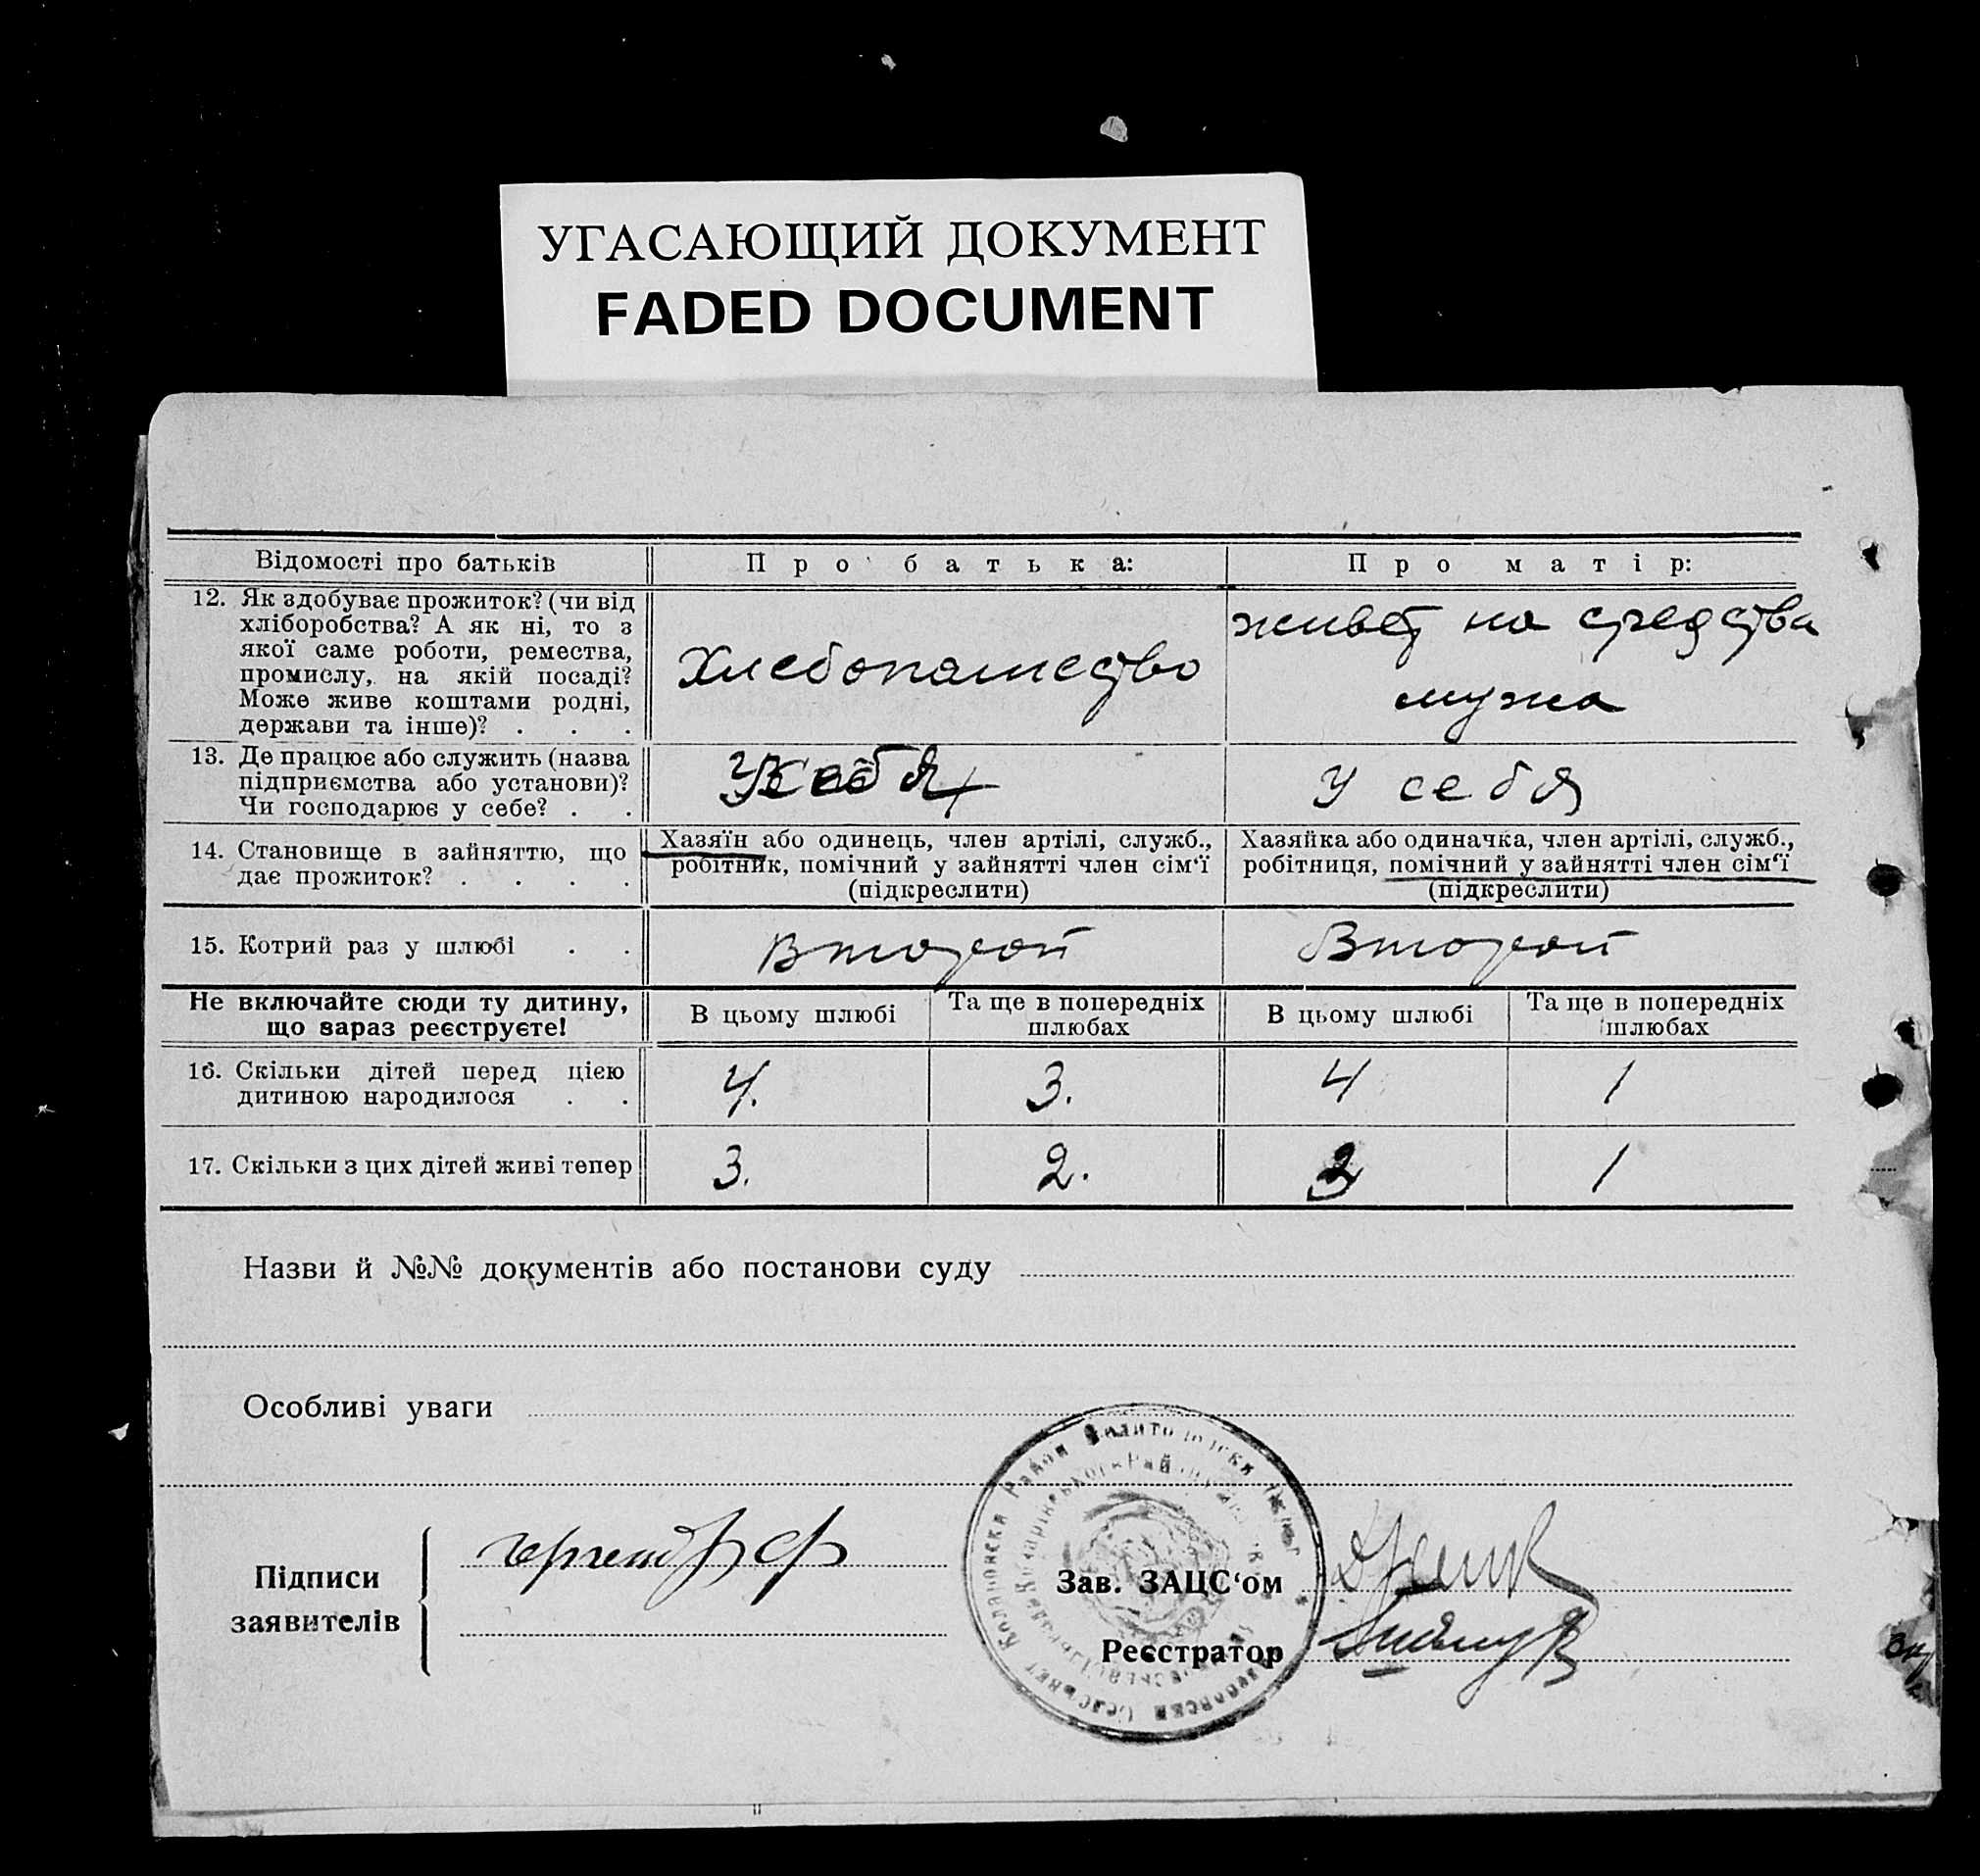 УГАСАЮЩИЙ ДОКУМЕНТ
FADED DOCUMENT
Відомості про батьків
Про батька:
Про матір:
12. Як здобуває прожиток? (чи від
хліборобства? А як ні, то з
якої саме роботи, ремества,
промислу, на якій посаді?
Може живе коштами родні,
держави та інше)? . . .
Хлебопашество
живет на средства
мужа
13. Де працює або служить (назва
підприємства або установи)?
Чи господарює у себе? . .
У себя
У себя
14. Становище в зайняттю, що
дає прожиток? . . . .
Хазяїн або одинець, член артілі, служб.,
робітник, помічний у зайнятті член сім'ї
(підкреслити)
Хазяйка або одиначка, член артілі, служб.,
робітниця, помічний у зайнятті член сім'ї
(підкреслити)
15. Котрий раз у шлюбі . .
Второй
Второй
Не включайте сюди ту дитину,
що зараз реєструєте!
В цьому шлюбі
Та ще в попередніх
шлюбах
В цьому шлюбі
Та ще в попередніх
шлюбах
16. Скільки дітей перед цією
дитиною народилося . .
4.
3.
4
1
17. Скільки з цих дітей живі тепер
3.
2.
3
1
Назви й №№ документів або постанови суду
Особливі уваги
Підписи
заявителів
Зав. ЗАЦС'ом
Реєстратор